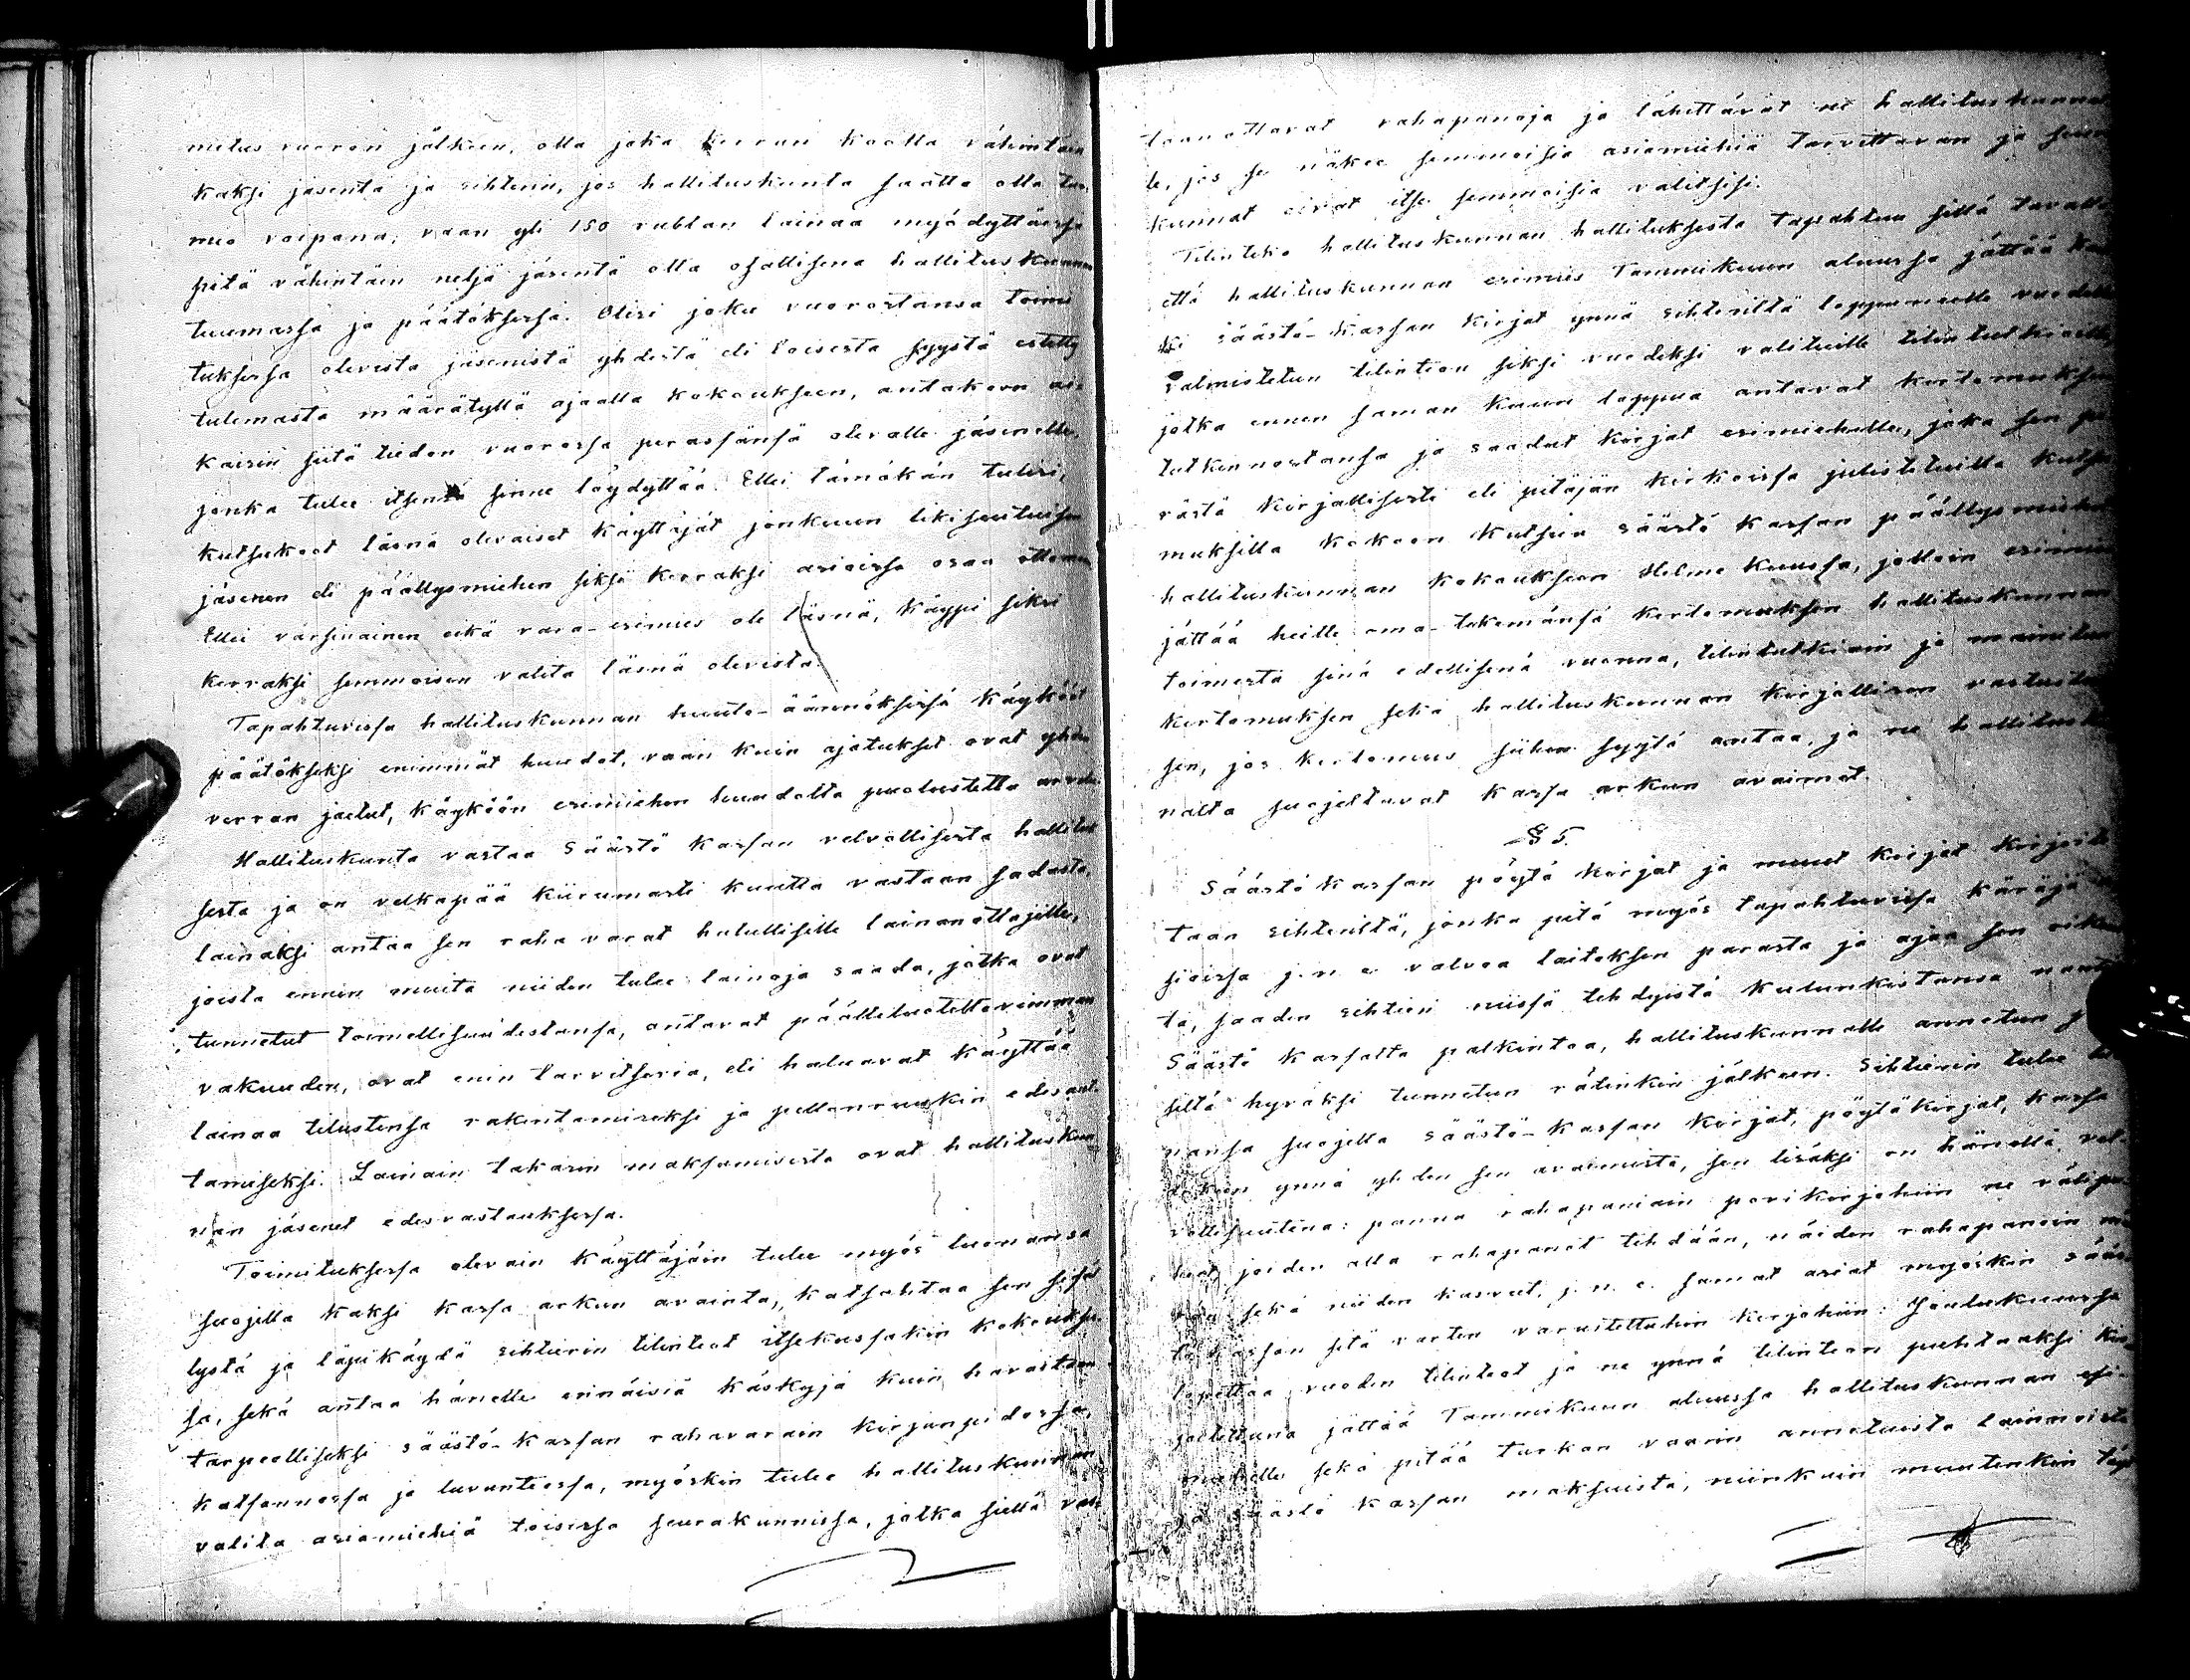 mitus vuoron jälkeen, olla joka kerran koolla vähintäin
kaksi jäsentä ja sihteeri, jos hallituskunta saatta olla
mio voipana; vaan yli 150 rublan lainaa myödyttäessä
pitä vähintäin neljä jäsentä olla osallisena hallituskunnan
tuumassa ja päätöksessä. Olisi joku vuorostansa toimi
tuksessa olevista jäsenistä yhdestä eli toisesta syystä estetty
tulemasta määrätyllä ajalla kokoukseen, antakoon ai-
kaisin siitä tiedon vuorossa perässänsä olevalle jäsenelle,
jonka tulee itsensä sinne löydyttää. Ellei tämäkän tulisi,
kutsukoot läsnä olevaiset käyttäjät jonkuun likiseutuisen
jäsenen eli päällysmiehen siksi kerraksi asioissa osaa ottamaan
Ellei varsinainen eikä vara-esimies ole läsnä, käypi siksi
kerraksi semmoisen valita läsnä olevista.
Tapahtuvissa hallituskunnan huuto-äännöksissä käyköö
päätökseksi enimmät huudot, vaan kuin ajatukset ovat yhden
verran jaetut, käyköön esimiehen huudolta puolustettu
Hallituskunta vastaa Säästö kassan velvollisesta hallituk
sesta ja on velkapää kiirumasti kuutta vastaan sadasta,
lainaksi antaa sen raha varat halullisille lainanottajille,
joista ennen muita niiden tulee lainoja saada, jotka ovat
tunnetut toimellisuudestansa, antavat päälleluotettavimman
vakuuden, ovat enin tarvitsevia, eli haluavat käyttää
lainaa tilustensa rakentamiseksi ja pellonruukin edesaut
tamiseksi. Lainain takasin maksamisesta ovat hallituskun
nan jäsenet edesvastauksessa.
Toimituksessa olevain käyttäjäin tulee myös luonansa
suojella kaksi kassa arkun avainta, katsahtaa sen sisäl
lystä ja läpikäydä sihteerin tilinteot itsekussakin kokoukses
sa, sekä antaa hänelle erinäisiä käskyjä kuin havaitaan
tarpeelliseksi säästö-kassan rahavarain kirjanpidossa,
katsannossa ja luvunteossa, myöskin tulee hallituskunnan
valita asiamiehiä toisissa seurakunnissa, jotka siellä vas
taanottavat rahapanoja ja lähettävät ne hallituskunnal
le, jos se näkee semmoisia asiamiehiä tarvittavan ja seura
kunnat eivät itse semmoisia valitsisi.
Tilinteko hallituskunnan hallituksesta tapahtuu sillä tavalla
että hallituskunnan esimies Tammikuun alussa jättää
ki säästö-kassan kirjat ynnä sihteriltä loppuneelle vuodelle
valmistetun tilinteon siksi vuodeksi valituille tilintutkioille
jotka ennen saman kuun loppua antavat kertomuksen
tutkinnostansa ja saadut kirjat esimiehelle, joka sen pe
rästä kirjallisesti eli pitäjän kirkoissa julistetuilla kutsu
muksilla kokoon kutsuu säästö kassan päällysmiehet
hallituskunnan kokoukseen Helme kuussa, jolloin esimies
jättää heille oma-tekemänsä kertomuksen hallituskunnan
toimesta sinä edellisenä vuonna, tilintutkiain ja mainitun
kertomuksen sekä hallituskunnan kirjallisen vastauk
sen, jos kertomus siihen syytä antaa, ja ne hallituskun
nalta suojeltavat kassa arkun avaimet.
§ 5.
Säästö kassan pöytä kirjat ja muut kirjat kirjoite
taan sihteriltä, jonka pitä myös tapahtuvissa käräjä
sioissa j. n. e. valvoa laitoksen parasta ja ajaa sen oikeut
ta, saaden sihteeri niissä tehdyistä kulunkistansa
Säästö kassalta palkintoa, hallituskunnalle annetun ja
siltä hyväksi tunnetun rätinkin jälkeen. Sihteerin tulee
nansa suojella säästö-kassan kirjat, pöytäkirjat, kassa
arkun ynnä yhden sen avaimista, sen lisäksi on hänellä vel-
vollisuutena: panna rahapaniain porikirjoihin ne välipu
heet joiden alla rahapanot tehdään, näiden rahapanoin
sekä niiden kasvut, j. n. e. samat asiat myöskin sääs
tö kassan sitä varten varustettuhin kirjohiin. Joulukuussa
lopettaa vuoden tilinteot ja ne ynnä tilinteon puhtaaksi kir
joitettuna jättää Tammikuun alussa hallituskunnan esi-
miehelle sekä pitää tarkan vaarin annetuista lainoista
ja säästö kassan maksuista, niinkuin muutenkin täyt